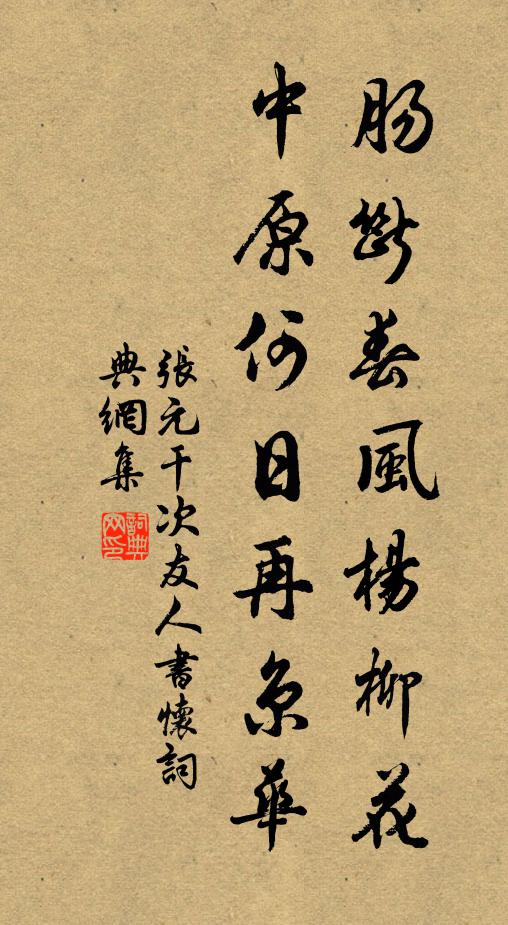 肠斷春風楊柳花
中原何日再京華
張元干次友人書懷詞
典網集
詞典
网印